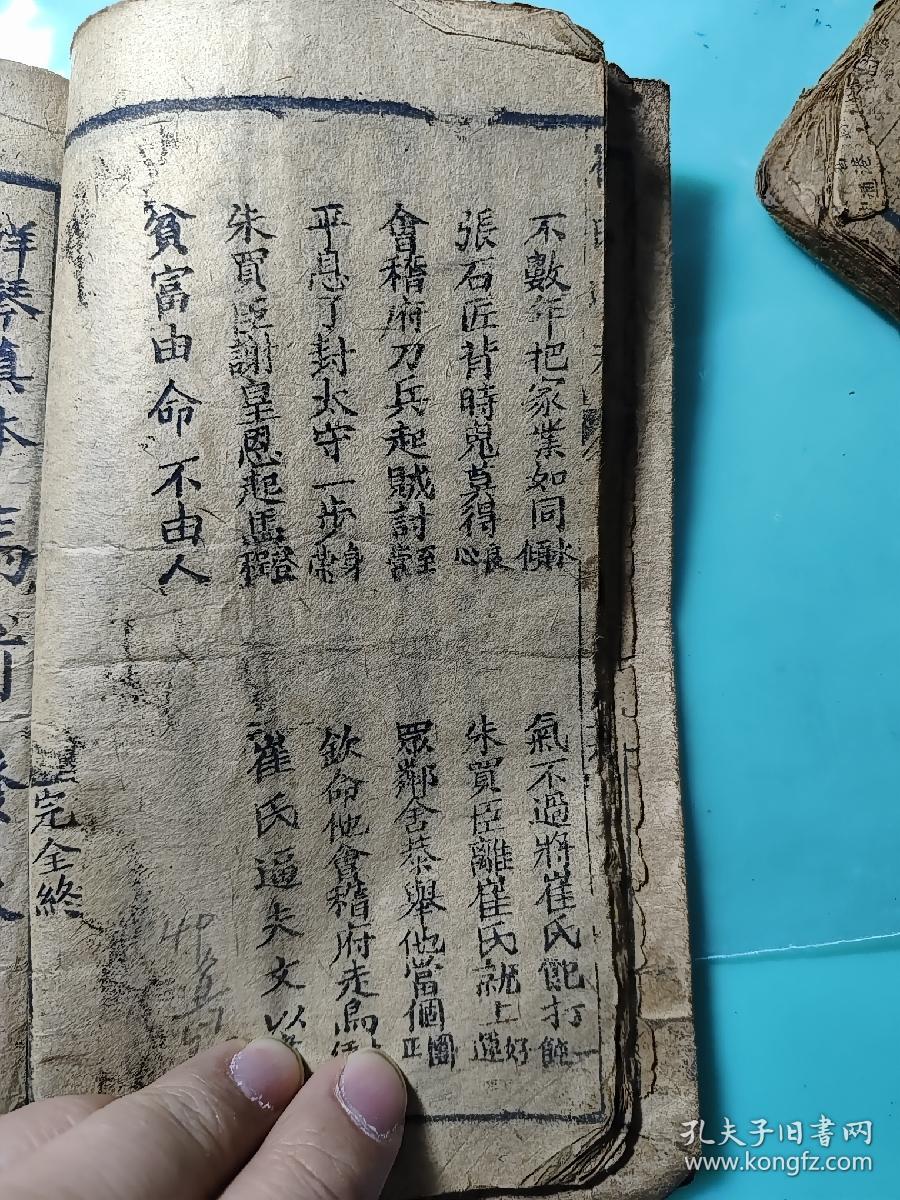 不數年把家業如同水傾
氣不過將崔氏飽打一飽
張石匠背時鬼莫得良心
朱買臣離崔氏就上好運
會稽府刀兵起賊討至營
眾鄰舍恭舉他當個團正
平息了封太守一步身榮
欽命他會稽府走馬
朱買臣謝皇恩起馬程
崔氏逼夫文以
貧富由命不由人
完全終
洋琴真本
孔夫子旧书网
www.kongfz.com